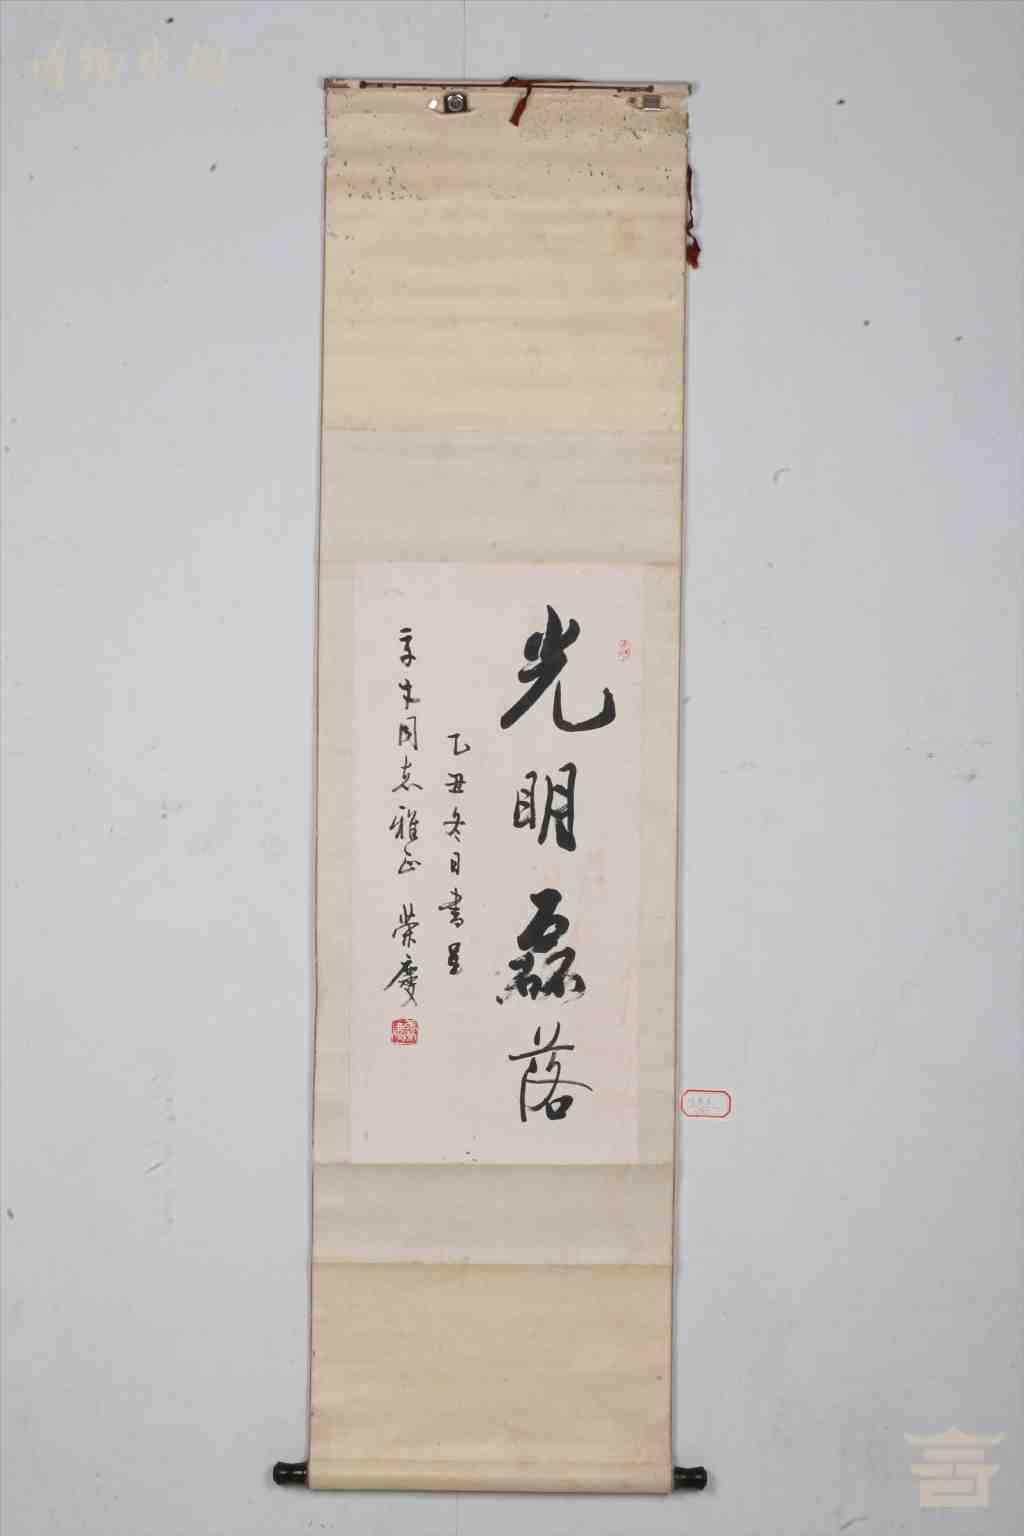 光明磊落
乙丑冬日書呈
同志雅正 榮慶